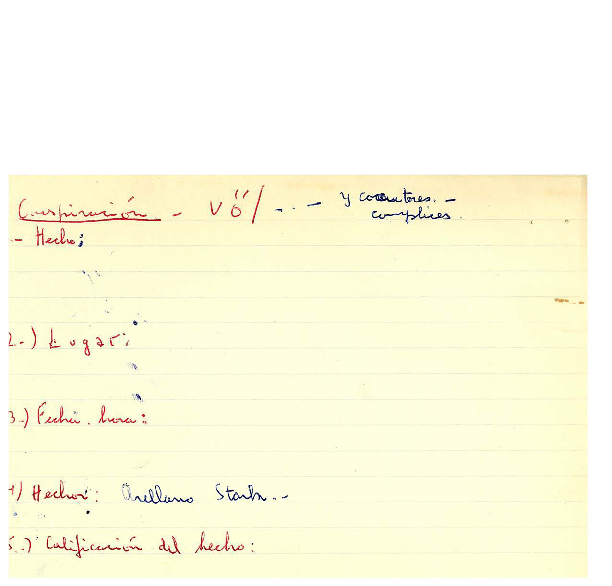 Conspiración - Vö/ . . - y coautores. -
complices.
.- Hecho;
2.-) Lugar;
3.-) Fecha. hora:
4) Hechor: Arellano Stark. -
5.-) Calificación del hecho: